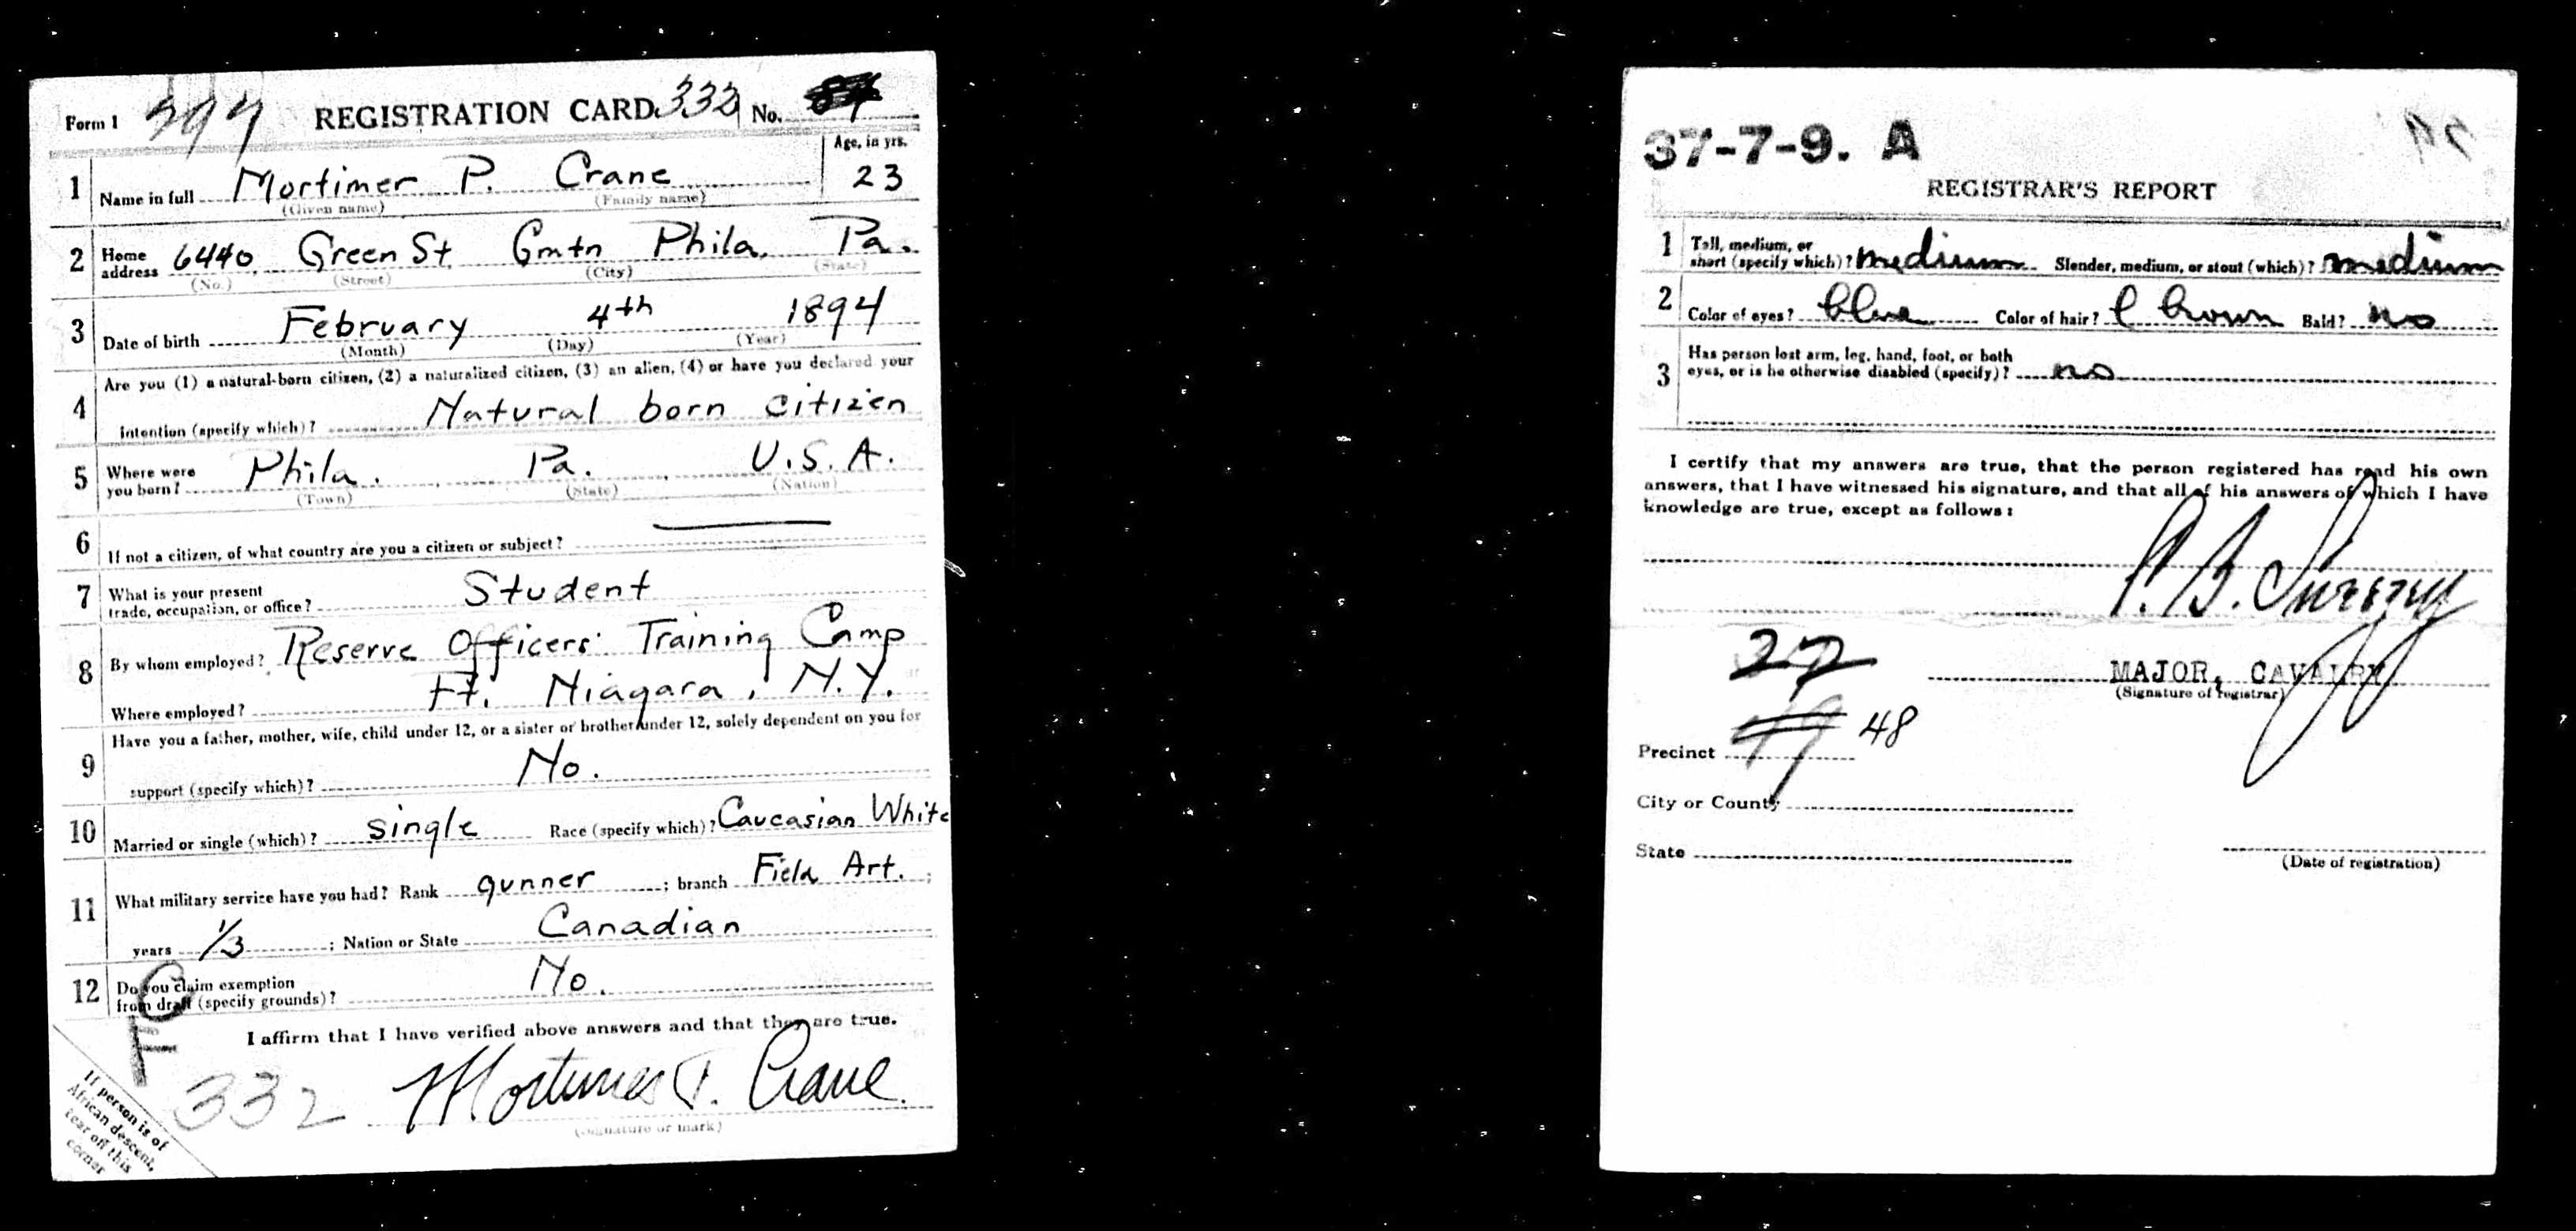 Form 1 397 REGISTRATION CARD 332 No.
Age, in yrs.
1 Name in full Mortimer P. Crane 23
(Given name) (Family name)
2 Home address 6440 Green St Gmtn Phila. Pa.
(No.) (Street) (City) (State)
3 Date of birth February 4th 1894
(Month) (Day) (Year)
Are you (1) a natural-born citizen, (2) a naturalized citizen, (3) an alien, (4) or have you declared your
4 intention (specify which)? Natural born citizen
5 Where were you born? Phila. Pa. U.S.A.
(Town) (State) (Nation)
6 If not a citizen, of what country are you a citizen or subject?
7 What is your present
trade, occupation, or office? Student
8 By whom employed? Reserve Officers' Training Camp
Where employed? Ft. Niagara, N.Y.
Have you a father, mother, wife, child under 12, or a sister or brother under 12, solely dependent on you for
9 support (specify which)? No.
10 Married or single (which)? single Race (specify which)? Caucasian White
11 What military service have you had? Rank gunner ; branch Field Art. ;
years 1/3 ; Nation or State Canadian
12 Do you claim exemption
from draft (specify grounds)? No.
I affirm that I have verified above answers and that they are true.
332 Mortimer P. Crane
(Signature or mark)
If person is of
African descent,
tear off this
corner
37-7-9. A
REGISTRAR'S REPORT
1 Tall, medium, or
short (specify which)? medium Slender, medium, or stout (which)? medium
2 Color of eyes? blue Color of hair? l brown Bald? no
Has person lost arm, leg, hand, foot, or both
3 eyes, or is he otherwise disabled (specify)? no
I certify that my answers are true, that the person registered has read his own
answers, that I have witnessed his signature, and that all of his answers of which I have
knowledge are true, except as follows:
27
MAJOR, CAVALRY
(Signature of registrar)
Precinct 49 48
City or County
State
(Date of registration)